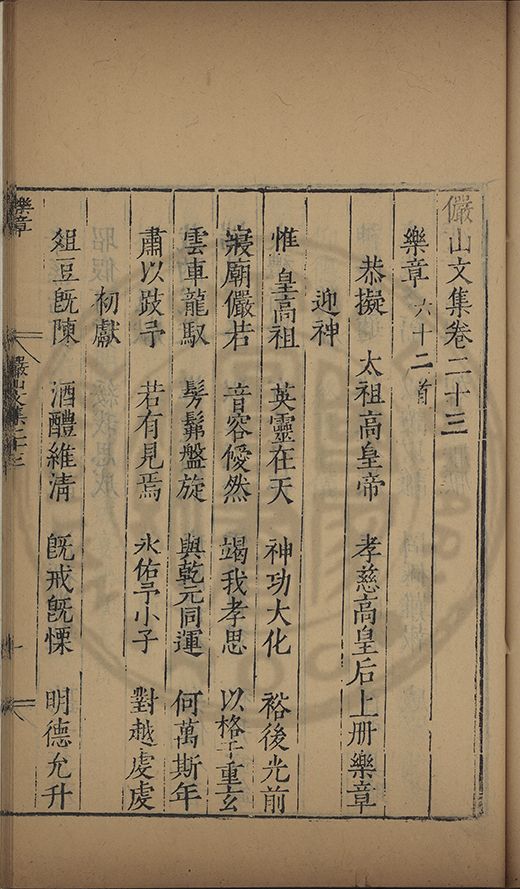 儼山文集卷二十三
樂章 六十二首
恭擬 太祖高皇帝 孝慈高皇后上册樂章
迎神
惟 皇高祖 英靈在天 神功大化 裕後光前
寢廟儼若 音容僾然 竭我孝思 以格于重玄
雲車龍馭 髣髴盤旋 與乾元同運 何萬斯年
肅以跂予 若有見焉 永佑予小子 對越虔虔
初獻
俎豆既陳 酒醴維清 既戒既慄 明德允升
樂章
儼山文集二十三
一